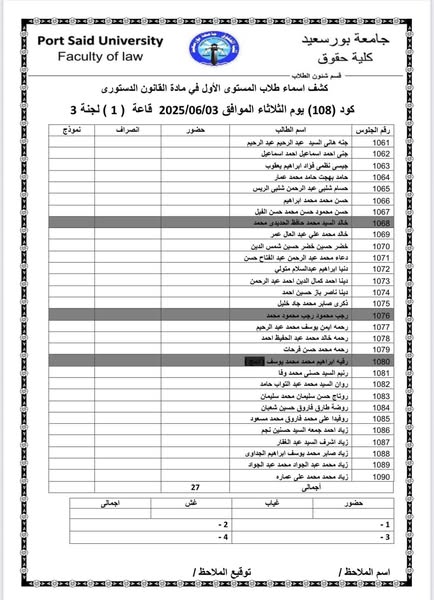 Port Said University
Faculty of law
جامعة بورسعيد
كلية حقوق
قسم شئون الطلاب
كشف اسماء طلاب المستوى الأول في مادة القانون الدستورى
كود (108) يوم الثلاثاء الموافق 2025/06/03 قاعة ( 1 ) لجنة 3
رقم الجلوس اسم الطالب حضور انصراف نموذج
1061 جنه هانى السيد عبد الرحيم عبد الرحيم
1062 جنى احمد اسماعيل احمد اسماعيل
1063 جيسى نظمى فؤاد ابراهيم يعقوب
1064 حامد بهجت حامد محمد عمار
1065 حسام شلبى عبد الرحمن شلبى الريس
1066 حسن محمد محمد ابراهيم
1067 حسن محمود حسن محمد حسن الفيل
1068 خالد السيد محمد حافظ الحديدى محمد
1069 خالد محمد علي عبد العال عمر
1070 خضر حسين خضر حسين شمس الدين
1071 دعاء محمد عبد الرحمن عبد الفتاح حسن
1072 دنيا ابراهيم عبدالسلام متولي
1073 دينا احمد كمال الدين احمد عبد الرحمن
1074 دينا ناصر باز حسين احمد
1075 ذكرى صابر محمد جاد خليل
1076 رجب محمود رجب محمود محمد
1077 رحمه ايمن يوسف محمد عبد الرحيم
1078 رحمه خالد محمد عبد الحفيظ احمد
1079 رحمه محمد حسن فرحات
1080 رقيه ابراهيم محمد محمد يوسف
1081 رنيم السيد حسنى محمد وفا
1082 روان السيد محمد عبد التواب حامد
1083 روناج حسن سليمان محمد سليمان
1084 روضة طارق فاروق حسين شعبان
1085 روفيدا على محمد فاروق محمد مسعود
1086 زياد احمد جمعه السيد حسنين نجم
1087 زياد اشرف السيد عبد الغفار
1088 زياد صابر محمد يوسف ابراهيم الجداوى
1089 زياد محمد عبد الجواد محمد عبد الجواد
1090 زياد محمد محمد علي عماره
أجمالى 27
حضور غياب غش اجمالى
1 - 2 -
3 - 4 -
اسم الملاحظ / توقيع الملاحظ /